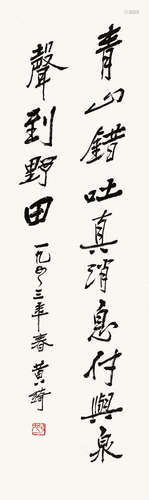 青山錯吐真消息付與泉
聲到野田
一九四三年春黄綺